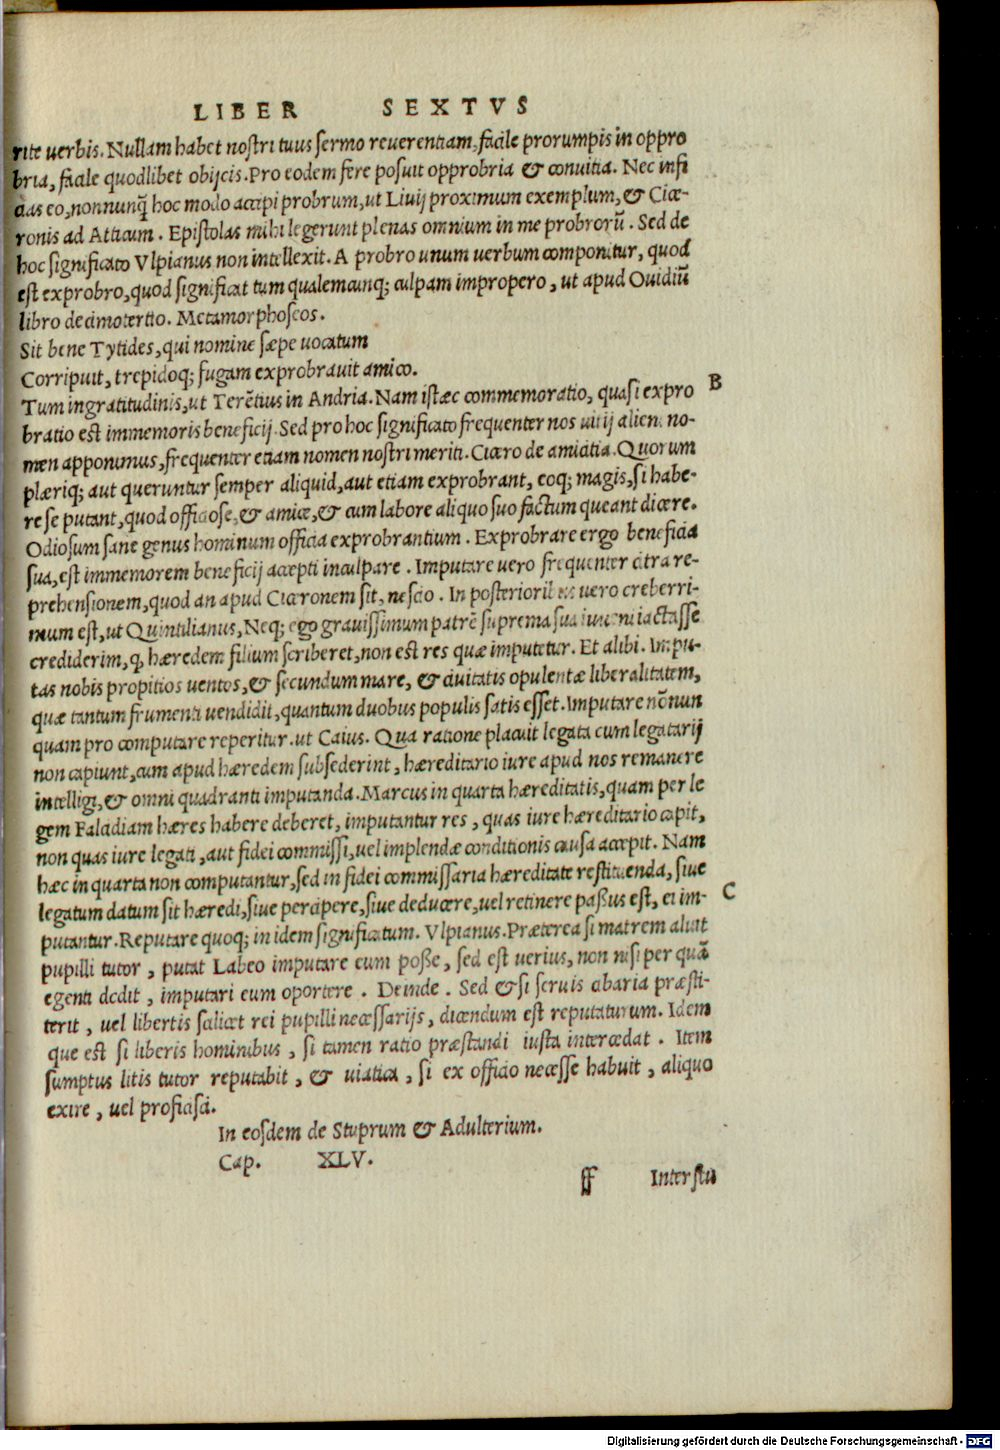 LIBER SEXTVS
rite uerbis. Nullam habet nostri tuus sermo reuerentiam, facile prorumpis in oppro
bria, facile quodlibet obijcis. Pro eodem fere posuit opprobria & conuitia. Nec infi
cias eo, nonnunq̃ hoc modo accipi probrum, ut Liuij proximum exemplum, & Cice-
ronis ad Atticum. Epistolas mihi legerunt plenas omnium in me probrorũ. Sed de
hoc significato Vlpianus non intellexit. A probro unum uerbum componitur, quod
est exprobro, quod significat tum qualemcunq; culpam impropero, ut apud Ouidiũ
libro decimotertio. Metamorphoseos.
Sit bene Tytides, qui nomine sæpe uocatum
Corripuit, trepidoq; fugam exprobrauit amico.
Tum ingratitudinis, ut Terẽtius in Andria. Nam istæc commemoratio, quasi expro B
bratio est immemoris beneficij. Sed pro hoc significato frequenter nos uitij alieni no-
men apponimus, frequenter etiam nomen nostri meriti. Cicero de amicitia. Quorum
plæriq; aut queruntur semper aliquid, aut etiam exprobrant, eoq; magis, si habe-
re se putant, quod officiose, & amice, & cum labore aliquo suo factum queant dicere.
Odiosum sane genus hominum officia exprobrantium. Exprobrare ergo beneficia
sua, est immemorem beneficij accepti inculpare. Imputare uero frequenter citra re-
prehensionem, quod an apud Ciceronem sit, nescio. In posterioribus uero creberri-
mum est, ut Quintilianus, Neq; ego grauissimum patrẽ suprema sua iuueni iactasse
crediderim, q, hæredem filium scriberet, non est res quæ imputetur. Et alibi. Impu-
tas nobis propitios uentos, & secundum mare, & ciuitatis opulentæ liberalitatem,
quæ tantum frumenti uendidit, quantum duobus populis satis esset. Imputare nõnun
quam pro computare reperitur. ut Caius. Qua ratione placuit legata cum legatarij
non capiunt, cum apud hæredem subsederint, hæreditario iure apud nos remanere
intelligi, & omni quadranti imputanda. Marcus in quarta hæreditatis, quam per le
gem Falcidiam hæres habere deberet, imputantur res, quas iure hæreditario capit,
non quas iure legati, aut fidei commissi, uel implendæ conditionis causa accepit. Nam
hæc in quarta non computantur, sed in fidei commissaria hæreditate restituenda, siue
legatum datum sit hæredi, siue percipere, siue deducere, uel retinere passus est, ei im- C
putantur. Reputare quoq; in idem significatum. Vlpianus. Præterea si matrem aluit
pupilli tutor, putat Labeo imputare eum posse, sed est uerius, non nisi per quã
egenti dedit, imputari eum oportere. Deinde. Sed & si seruis cibaria præsti-
terit, uel libertis scilicet rei pupilli necessarijs, dicendum est reputaturum. Idem
que est si liberis hominibus, si tamen ratio præstandi iusta intercedat. Item
sumptus litis tutor reputabit, & uiatica, si ex officio necesse habuit, aliquo
exire, uel proficisci.
In eosdem de Stuprum & Adulterium.
Cap. XLV.
ff Inter stu